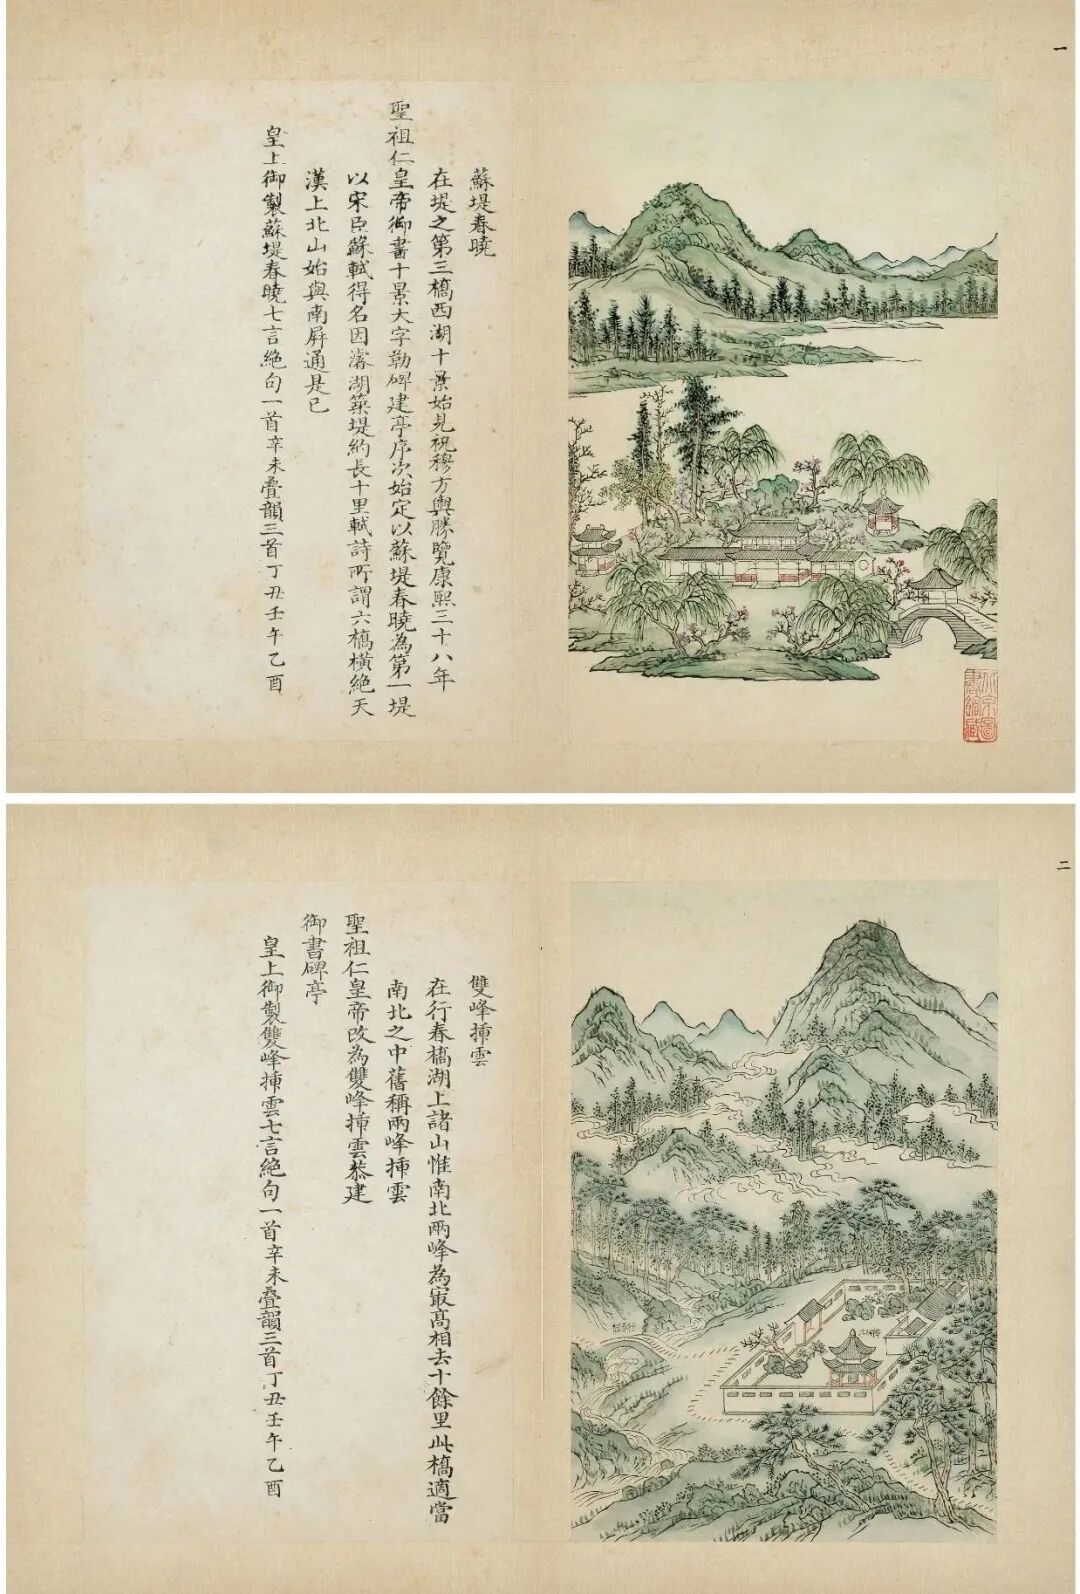 一
蘇堤春曉
在堤之第三橋西湖十景始見祝穆方輿勝覽康熙三十八年
聖祖仁皇帝御書十景大字勒碑建亭序次始定以蘇堤春曉為第一堤
以宋臣蘇軾得名因濬湖築堤約長十里軾詩所謂六橋橫絶天
漢上北山始與南屏通是已
皇上御製蘇堤春曉七言絶句一首辛未疊韻三首丁丑壬午乙酉
二
雙峰揷雲
在行春橋湖上諸山惟南北兩峰為㝡高相去十餘里此橋適當
南北之中舊稱兩峰揷雲
聖祖仁皇帝改為雙峰揷雲恭建
御書碑亭
皇上御製雙峰揷雲七言絶句一首辛未疊韻三首丁丑壬午乙酉
行春橋